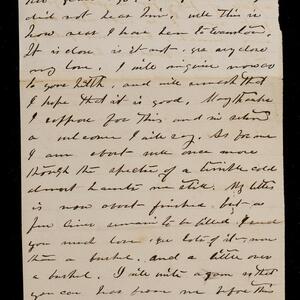 did not hear him, well this is
how near I have been to Evanston.
It is close is it not - yes very close
my love. I will inquire now as
to your health, and will remark that
I hope that it is good.
I suppose for this and in return
a welcome I will say. As for me
I am about well once more
though the specter of a terrible cold
almost haunts me still. My letter
is now about finished, but a
few lines remain to be filled. I send
you much love - yes lots of it - more
than a bushel, and a little over
a bushel. I will write again so that
you can hear from me before the